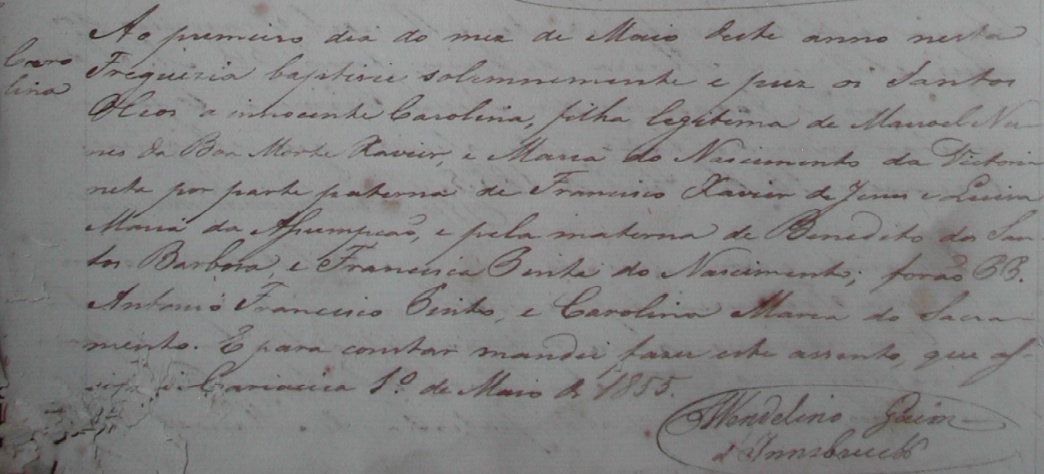 Caro
lina
Ao primeiro dia do mez de Maio deste anno nesta
Freguezia baptizei solemnemente e puz os Santos
Oleos a innocente Carolina, filha legitima de Manoel Nu-
nes da Boa Morte Xavier, e Maria do Nascimento da Victoria
neta por parte paterna de Francisco Xavier de Jesus e Luiza
Maria da Assumpção, e pela materna de Benedito dos San-
tos Barbosa, e Francisca Pinta do Nascimento; forão PP.
Antonio Francisco Pinto, e Carolina Maria do Sacra-
mento. E para constar mandei fazer este assento, que as-
Cariacica 1º de Maio de 1855.
Wendelino
d'Innsbruck